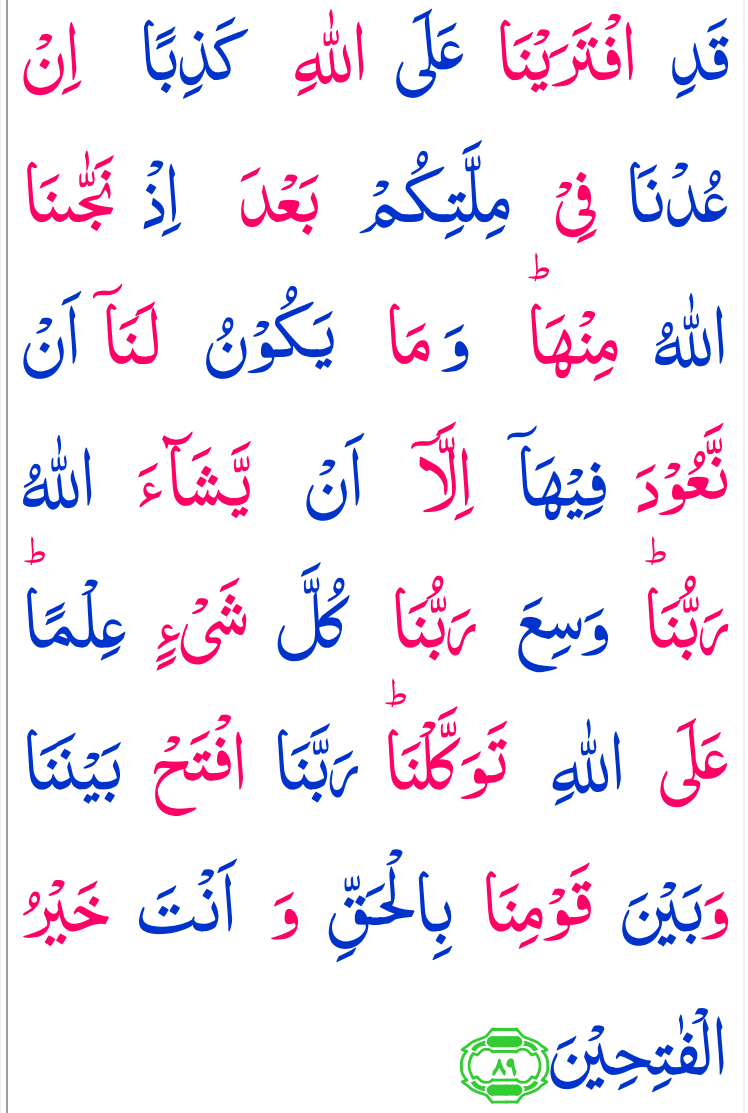 قَدِ افْتَرَیْنَا عَلَی اللّٰهِ كَذِبًا اِنْ
عُدْنَا فِیْ مِلَّتِكُمْ بَعْدَ اِذْ نَجّٰىنَا
اللّٰهُ مِنْهَاؕ وَ مَا یَكُوْنُ لَنَاۤ اَنْ
نَّعُوْدَ فِیْهَاۤ اِلَّاۤ اَنْ یَّشَآءَ اللّٰهُ
رَبُّنَاؕ وَسِعَ رَبُّنَا كُلَّ شَیْءٍ عِلْمًاؕ
عَلَی اللّٰهِ تَوَكَّلْنَاؕ رَبَّنَا افْتَحْ بَیْنَنَا
وَبَیْنَ قَوْمِنَا بِالْحَقِّ وَ اَنْتَ خَیْرُ
الْفٰتِحِیْنَ ۸۹